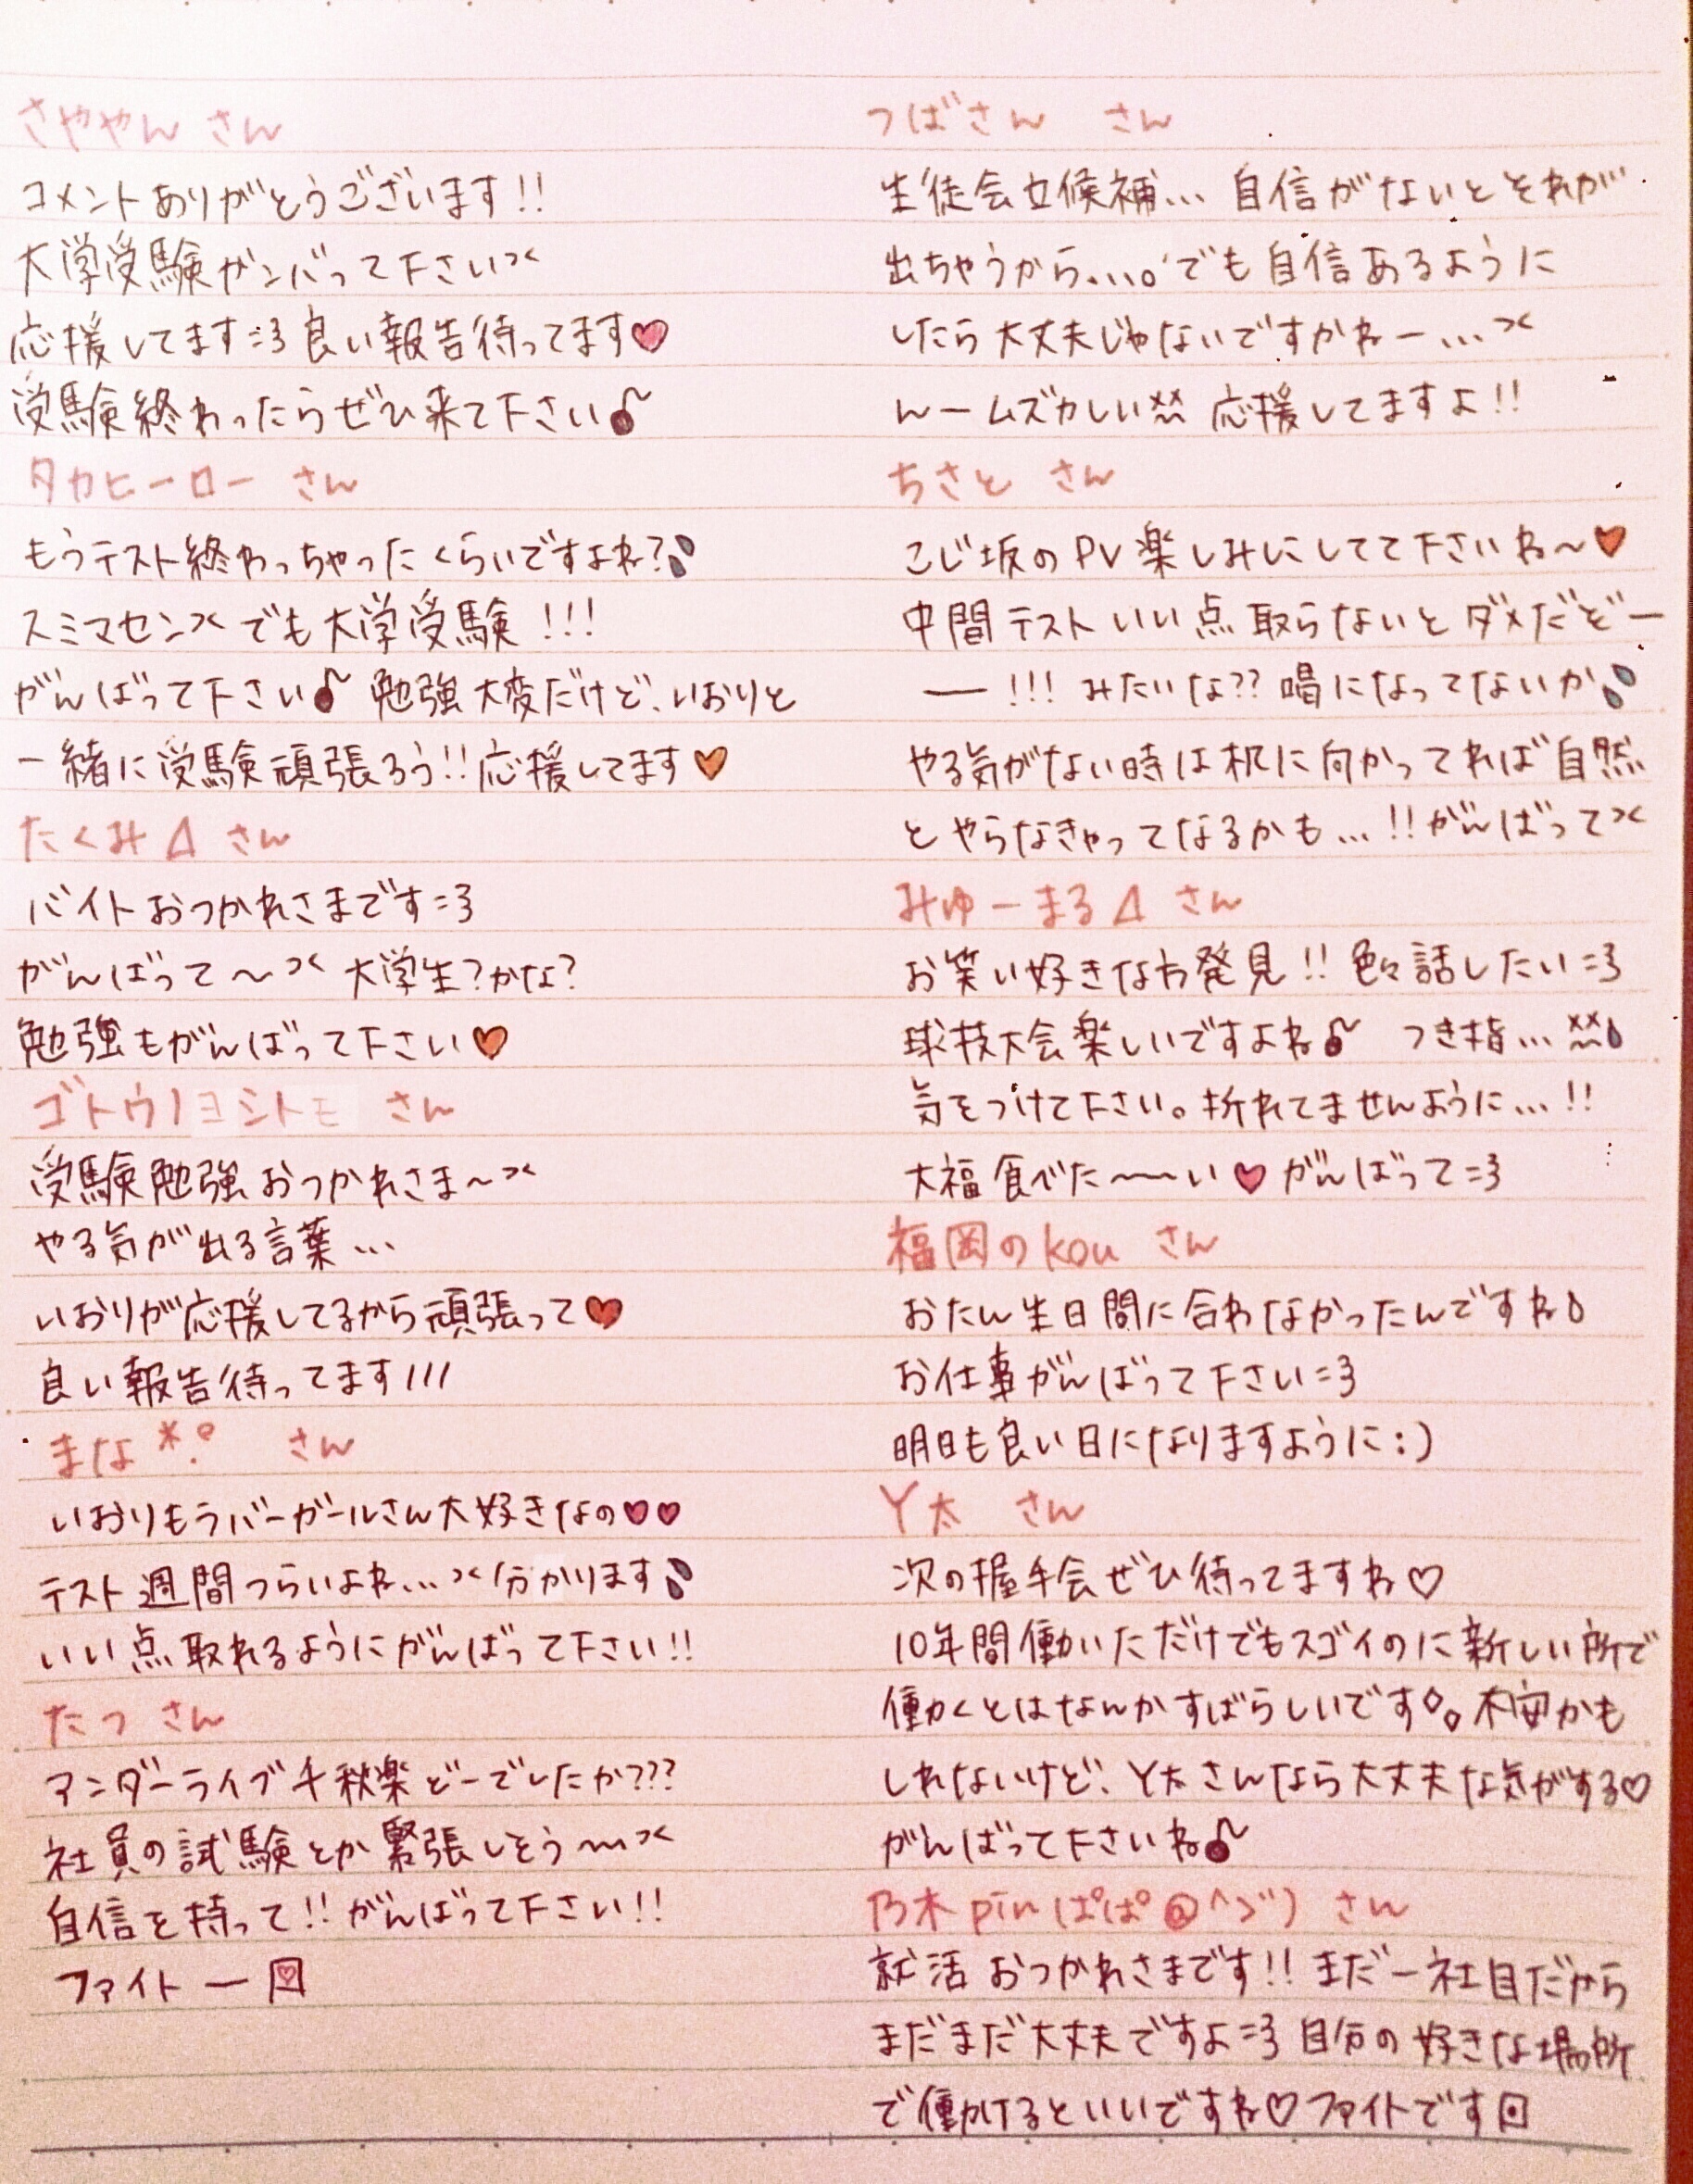 さややん さん
コメントありがとうございます!!
大学受験ガンバって下さい><
応援してます=3 良い報告待ってます♥
受験終わったらぜひ来て下さい♪
タカヒーロー さん
もうテスト終わっちゃったくらいですよね?
スミマセン>< でも大学受験!!!
がんばって下さい♪ 勉強大変だけど、いおりと
一緒に受験頑張ろう!! 応援してます♥
たくみ△ さん
バイトおつかれさまです=3
がんばって〜>< 大学生?かな?
勉強もがんばって下さい♥
ゴトウノヨシトモ さん
受験勉強おつかれさま〜><
やる気が出る言葉...
いおりが応援してるから頑張って♥
良い報告待ってます!!!
まな*.° さん
いおりもラバーガールさん大好きなの♥♥
テスト週間つらいよね...>< 分かります
いい点取れるようにがんばって下さい!!
たつ さん
アンダーライブ千秋楽どーでしたか???
社員の試験とか緊張しそう〜><
自信を持って!! がんばって下さい!!
ファイトー
つばさん さん
生徒会立候補... 自信がないとそれが
出ちゃうから...。でも自信あるように
したら大丈夫じゃないですかねー...><
んームズカしい 応援してますよ!!
ちさと さん
こじ坂のPV楽しみにしてて下さいね〜♥
中間テストいい点取らないとダメだぞー
ー!!! みたいな?? 喝になってないか
やる気がない時は机に向かってれば自然
とやらなきゃってなるかも...!! がんばって><
みゆーまる△ さん
お笑い好きなカ発見!! 色々話したい=3
球技大会楽しいですよね♪ つき指...
気をつけて下さい。折れてませんように...!!
大福食べた〜〜い♥ がんばって=3
福岡のkou さん
おたん生日間に合わなかったんですね
お仕事がんばって下さい=3
明日も良い日になりますように:)
Y太 さん
次の握手会ぜひ待ってますね♡
10年間働いただけでもスゴイのに新しい所で
働くとはなんかすばらしいです 不安かも
しれないけど、Y太さんなら大丈夫な気がする♡
がんばって下さいね♪
乃木pinぱぱ@^ゞ) さん
就活おつかれさまです!! まだ一社目だから
まだまだ大丈夫ですよ=3 自分の好きな場所
で働けるといいですね♡ ファイトです